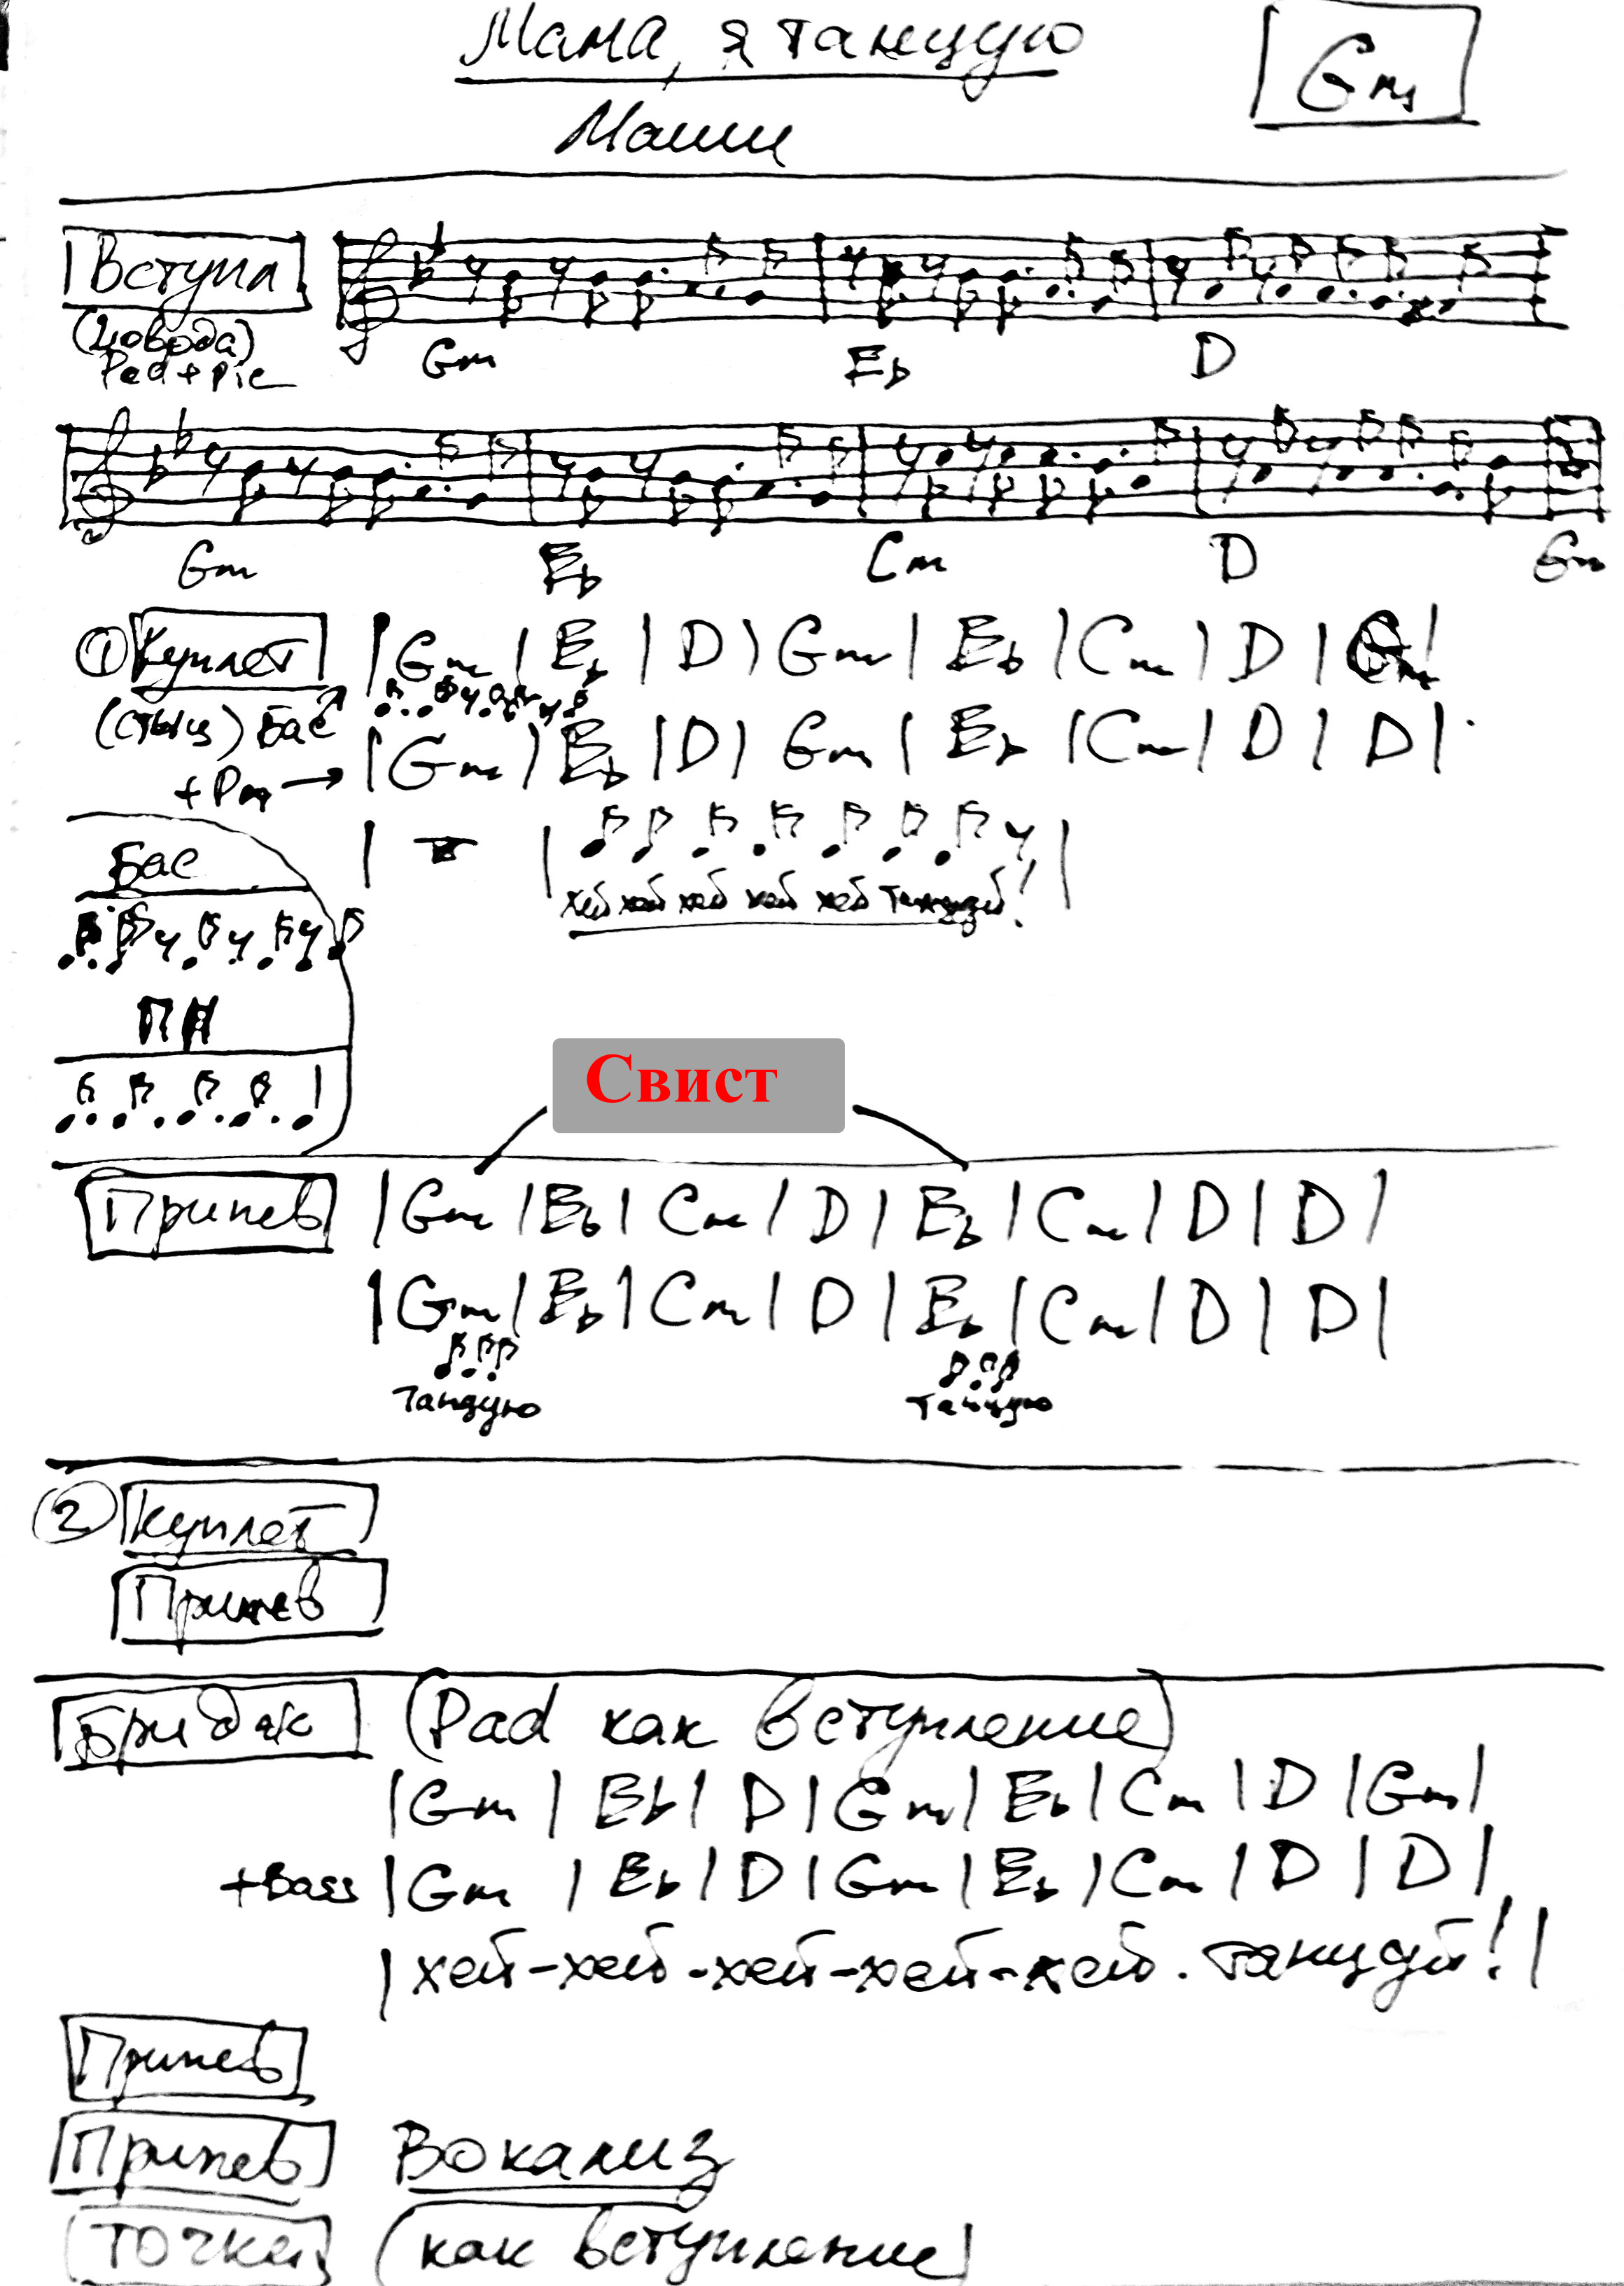 Мама, я танцую
Gm
Маши
Вступл
Pad + Pic
Gm Eb D
Gm Eb Cm D Gm
① Куплет | Gm | Eb | D | Gm | Eb | Cm | D | Gm |
Бас
| Gm | Eb | D | Gm | Eb | Cm | D | D |
Бас
хей хей хей хей хей танцуй!
Свист
Припев | Gm | Eb | Cm | D | Eb | Cm | D | D |
| Gm | Eb | Cm | D | Eb | Cm | D | D |
Танцую Танцую
② Куплет
Припев
Бридж (Pad как вступление)
| Gm | Eb | D | Gm | Eb | Cm | D | Gm |
+Bass | Gm | Eb | D | Gm | Eb | Cm | D | D |
| хей-хей-хей-хей-хей. танцуй! |
Припев
Припев Вокализ
Точка (как вступление)